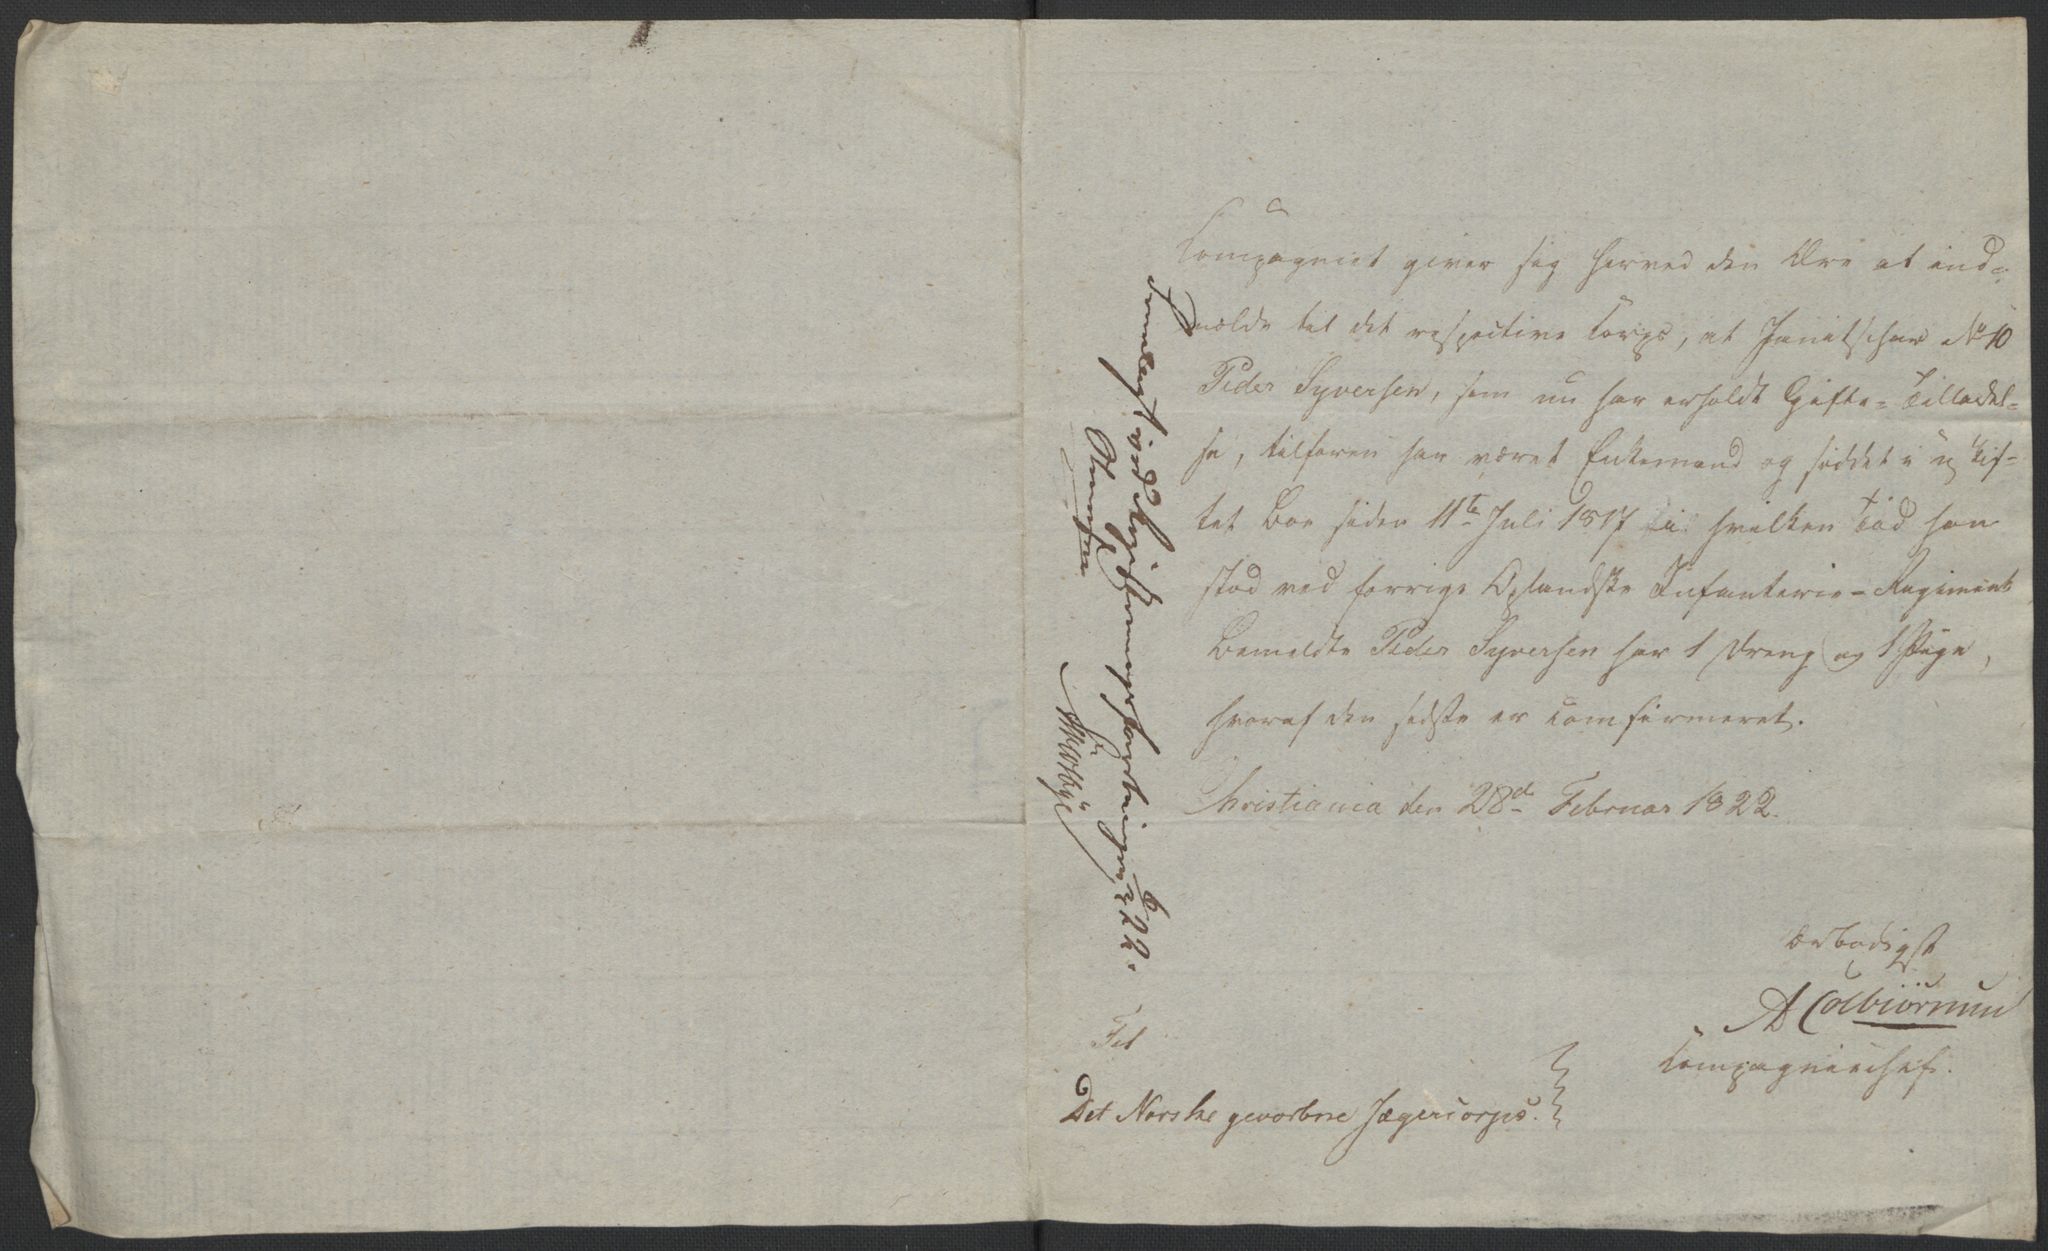 Compagniet giver sig herved den Ære at ind=
melde til det respective Corps, at Janitschar No 10
Peder Syversen, som nu har erholdt Gifte=Tilladel=
se, tilforen har været Enkemand og siddet i uskif=
tet Boe siden 11te Juli 1817 i hvilken Tid han
stod ved forrige Oplandske Infanterie=Regiment
Bemeldte Peder Syversen har 1 Dreng og 1 Pige,
hvoraf den sidste er comfirmeret.
Christiania den 28d Februar 1822.
Ærbødigst
A Colbiörnsen
Compagniechef.
Til
Det Norske gevorbne Jægercorps.
Fremlagt ved Skifteforretningen 6/3 22.